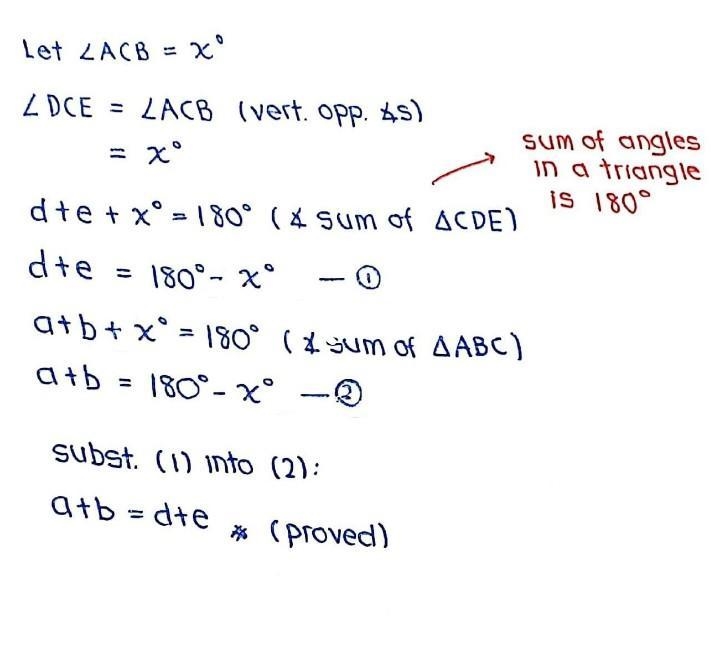 Let ∠ACB = x°
∠DCE = ∠ACB (vert. opp. ∡s)
= x°
sum of angles
in a triangle
is 180°
d+e + x° = 180° (∡ sum of △CDE)
d+e = 180° - x° — ①
a+b + x° = 180° (∡ sum of △ABC)
a+b = 180° - x° — ②
subst. (1) into (2):
a+b = d+e * (proved)